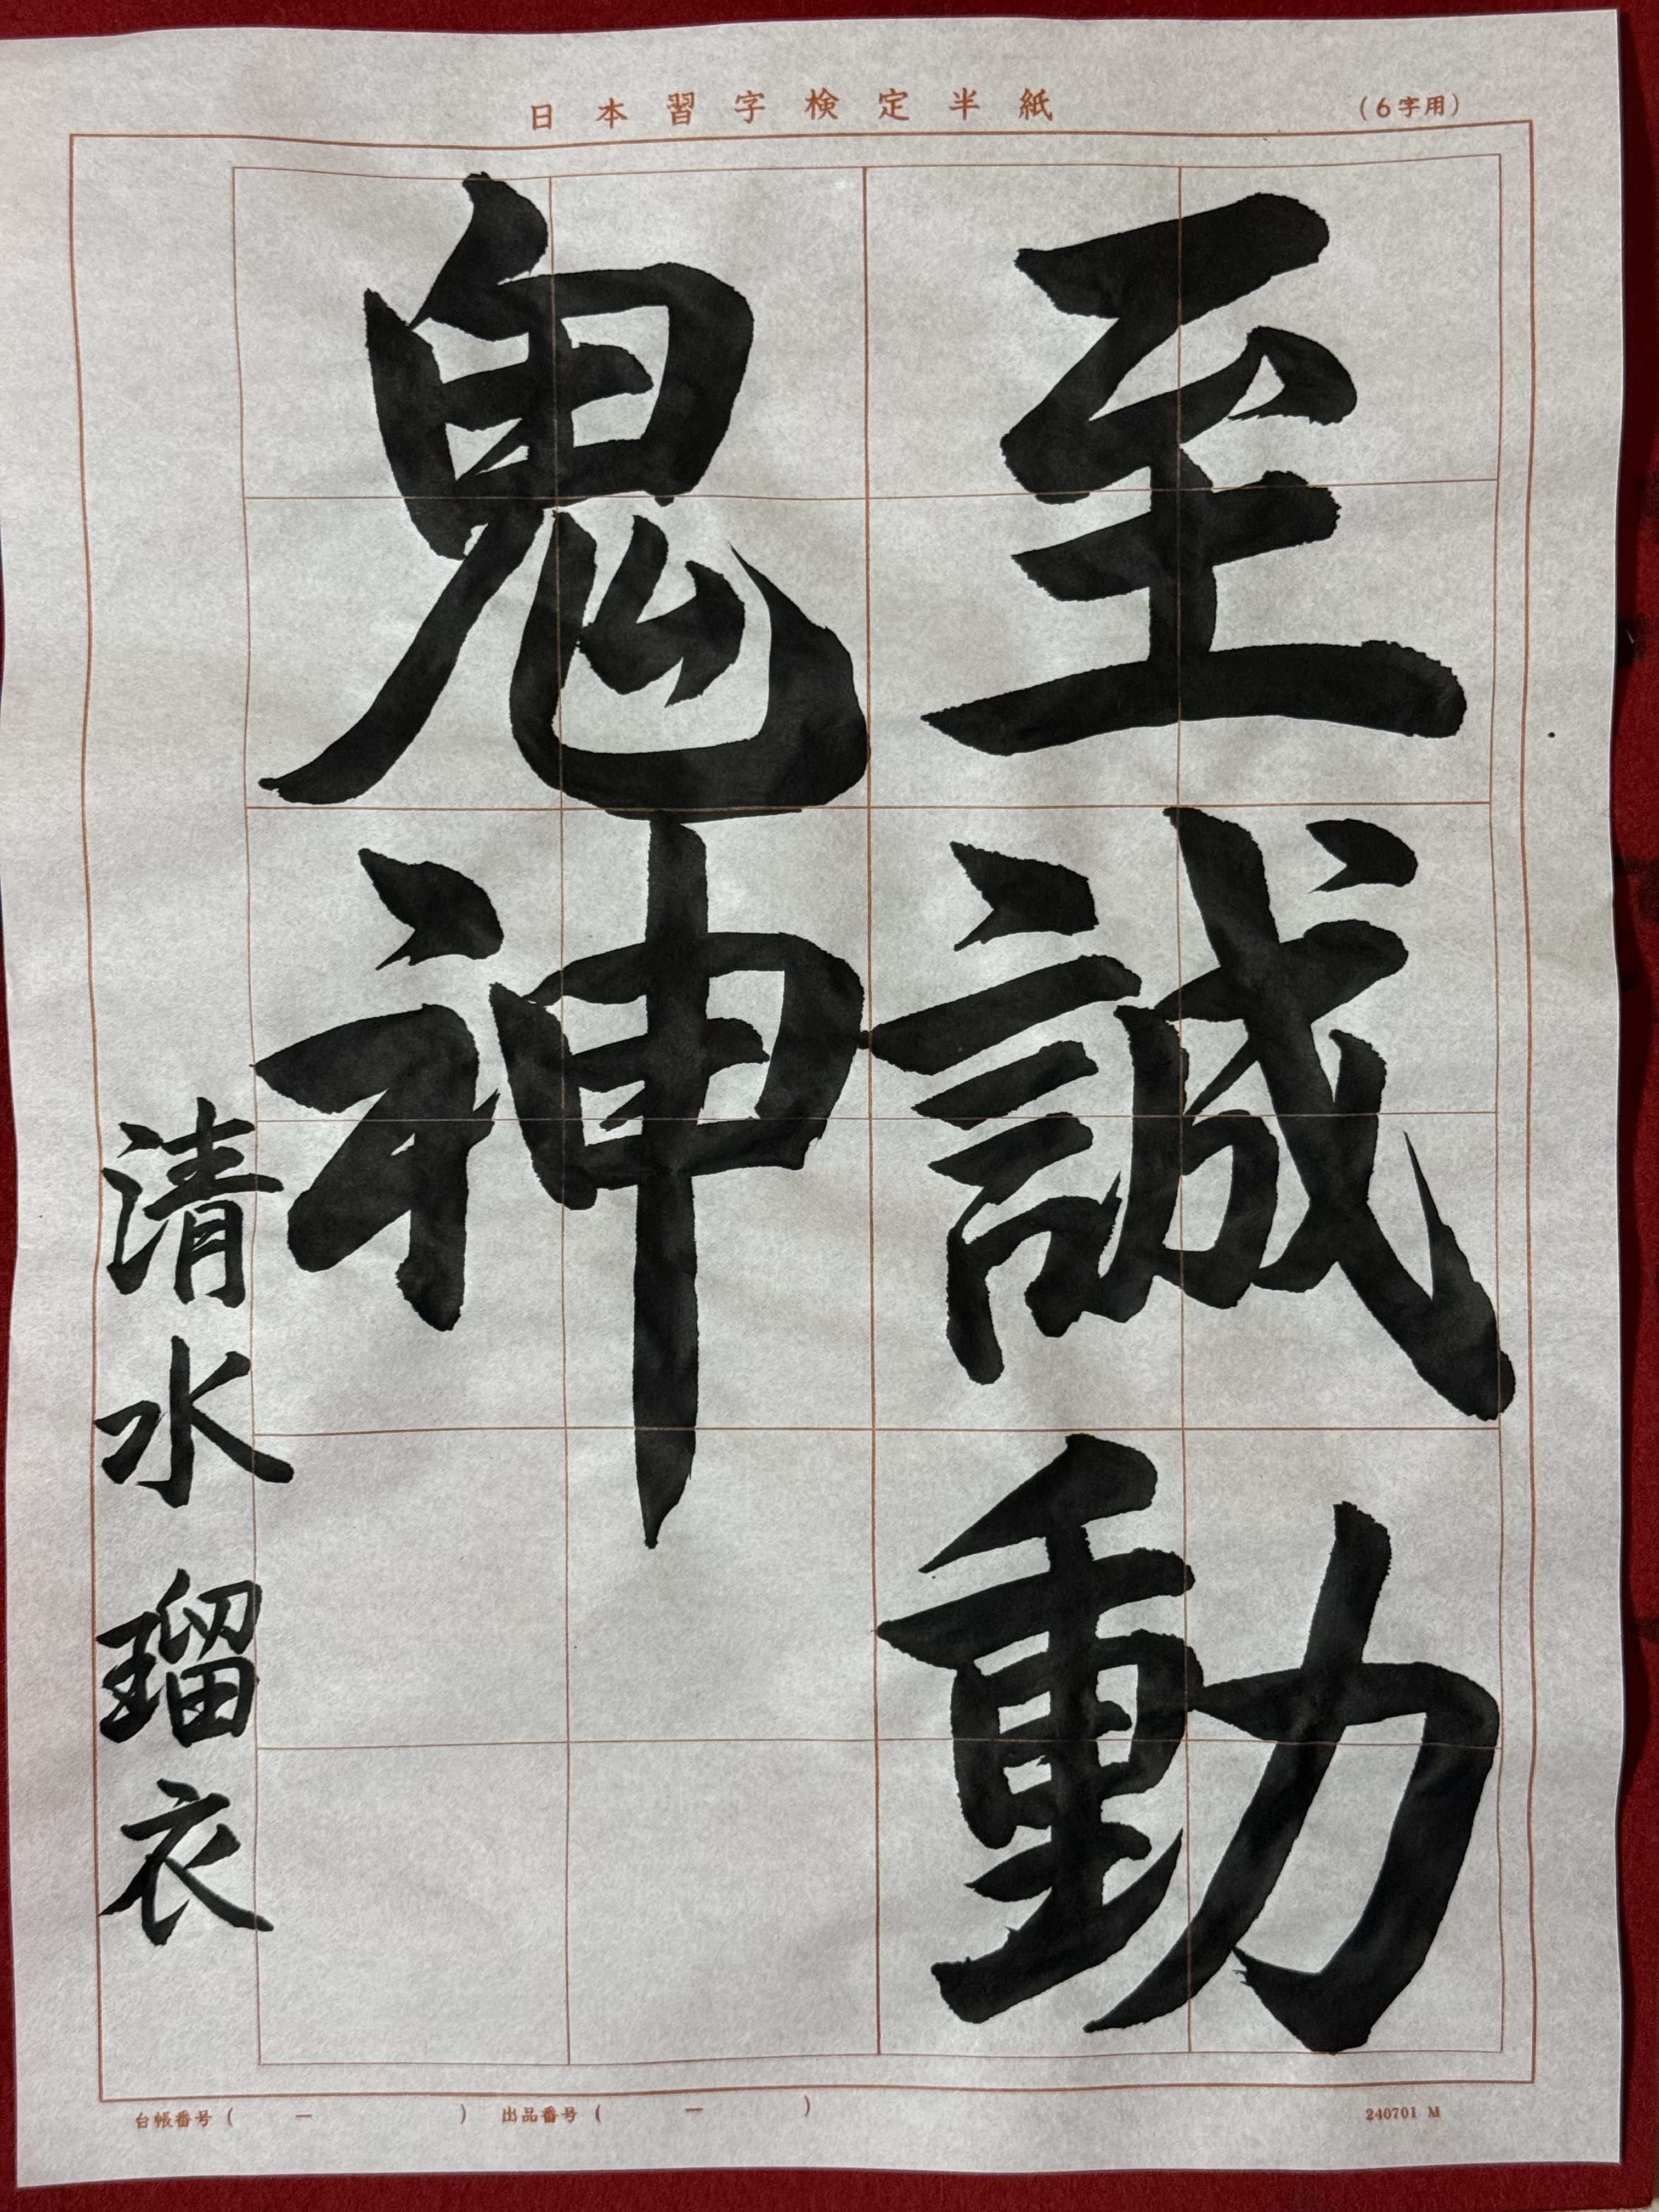 日本習字検定半紙
(6字用)
至誠動
鬼神
清水瑠衣
台帳番号( ー )
出品番号( ー )
240701 M